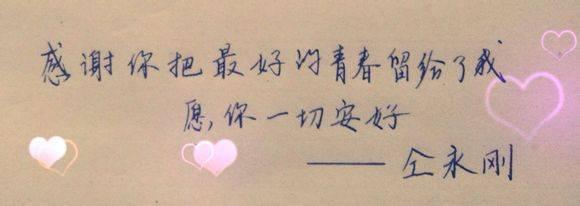 感谢你把最好的青春留给了我
愿,你一切安好
——仝永刚